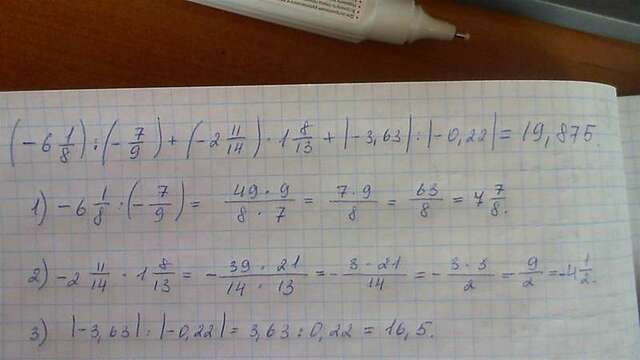 (-6 1/8) : (-7/9) + (-2 11/14) · 1 8/13 + |-3,63| : |-0,22| = 19,875
1) -6 1/8 : (-7/9) = 49·9/8·7 = 7·9/8 = 63/8 = 7 7/8.
2) -2 11/14 · 1 8/13 = -39·21/14·13 = -3·21/14 = -3·3/2 = -9/2 = -4 1/2.
3) |-3,63| : |-0,22| = 3,63 : 0,22 = 16,5.